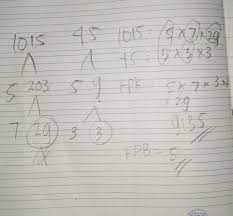 1015 45 1015 = 5 x 7 x 29
5 203 5 9 45 = 5 x 3 x 3
7 29 3 3 = 5 x 7 x 3 x
29
9135
= 5